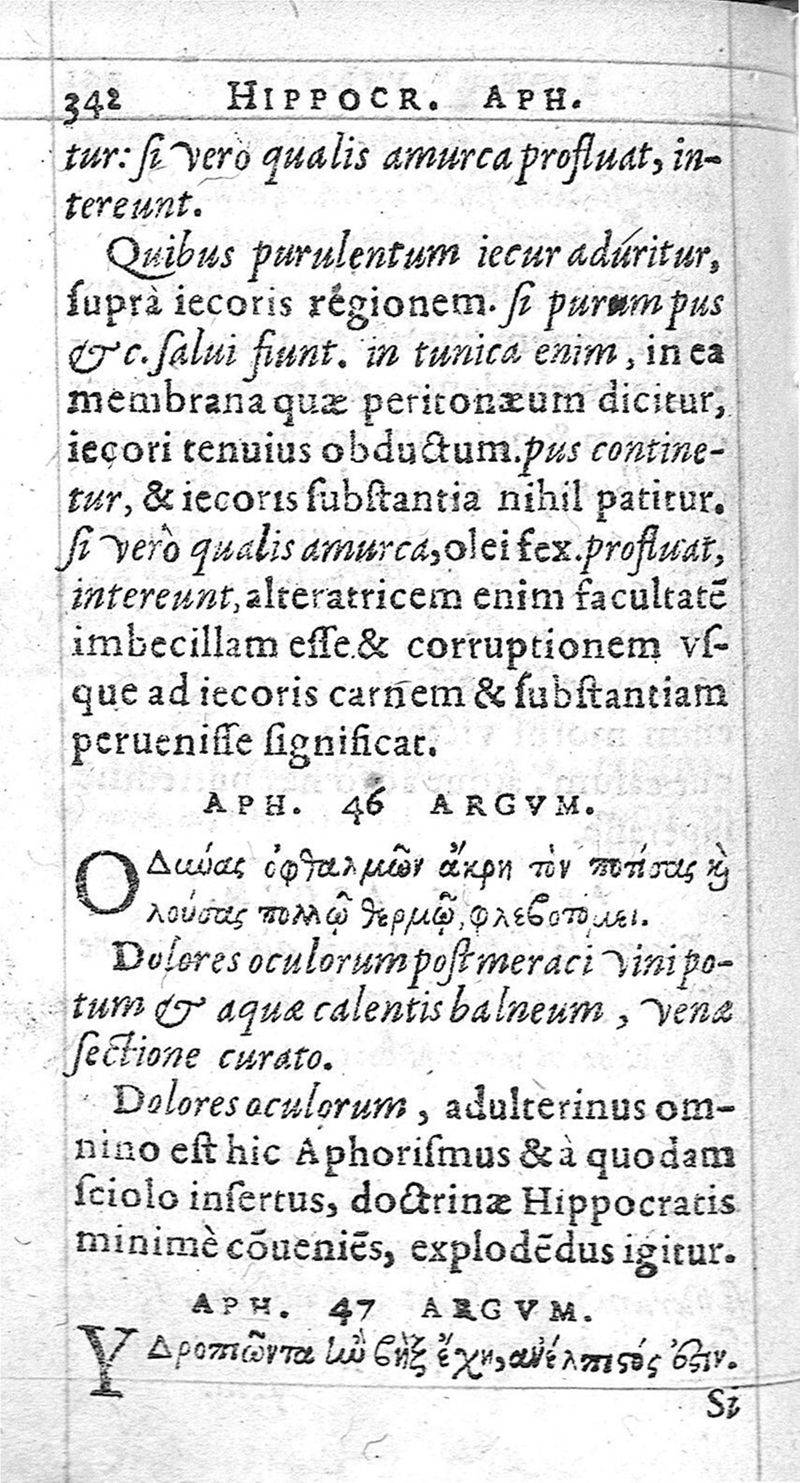 342 HIPPOCR. APH.
tur: ſi verò qualis amurca profluat, in-
tereunt.
Quibus purulentum iecur adúritur,
ſuprà iecoris régionem. ſi purum pus
& c. ſalui fiunt. in tunica enim, in ea
membrana quæ peritonæum dicitur,
iecori tenuius obductum. pus contine-
tur, & iecoris ſubſtantia nihil patitur.
ſi verò qualis amurca, olei fex. profluat,
intereunt, alteratricem enim facultatē
imbecillam eſſe. & corruptionem vſ-
que ad iecoris carnem & ſubſtantiam
perueniſſe ſignificat.
APH. 46 ARGVM.
ΟΔυύας ὀφθαλμῶν ἄκρη τὸν ποτίσας κὶ
λούσας πολλῷ θερμῷ, φλεβοτόμει.
Dolores oculorum poſt meraci vini po-
tum & aquæ calentis balneum, venæ
ſectione curato.
Dolores oculorum, adulterinus om-
nino eſt hic Aphoriſmus & à quodam
ſciolo inſertus, doctrinæ Hippocratis
minimè cōueniēs, explodēdus igitur.
APH. 47 ARGVM.
ΥΔρωπιῶντα ἰὼ βὴξ ἔχῃ, ἀνέλπιστός ὅστιν.
Si